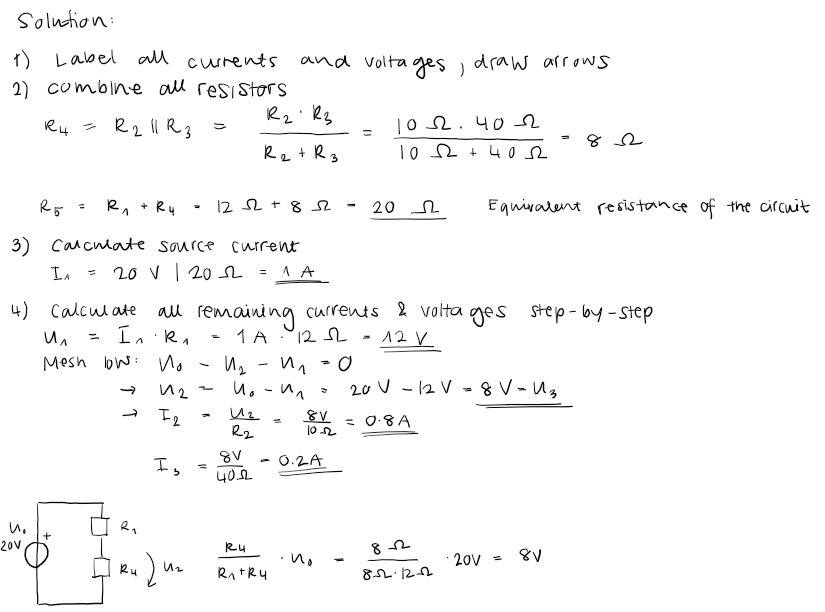 Solution:
1) Label all currents and voltages, draw arrows
2) combine all resistors
R₄ = R₂ || R₃ = (R₂ · R₃)/(R₂ + R₃) = (10 Ω · 40 Ω)/(10 Ω + 40 Ω) = 8 Ω
R₅ = R₁ + R₄ = 12 Ω + 8 Ω = 20 Ω Equivalent resistance of the circuit
3) Calculate source current
I₁ = 20 V | 20 Ω = 1 A
4) Calculate all remaining currents & voltages step-by-step
U₁ = I₁ · R₁ = 1 A · 12 Ω = 12 V
Mesh low: U₀ - U₂ - U₁ = 0
→ U₂ = U₀ - U₁ = 20 V - 12 V = 8 V = U₃
→ I₂ = U₂/R₂ = 8V/10Ω = 0.8 A
I₃ = 8V/40Ω = 0.2 A
U₀ + R₁
20V
R₄ U₂ R₄/(R₁+R₄) · U₀ = 8 Ω/(8Ω·12Ω) · 20V = 8V